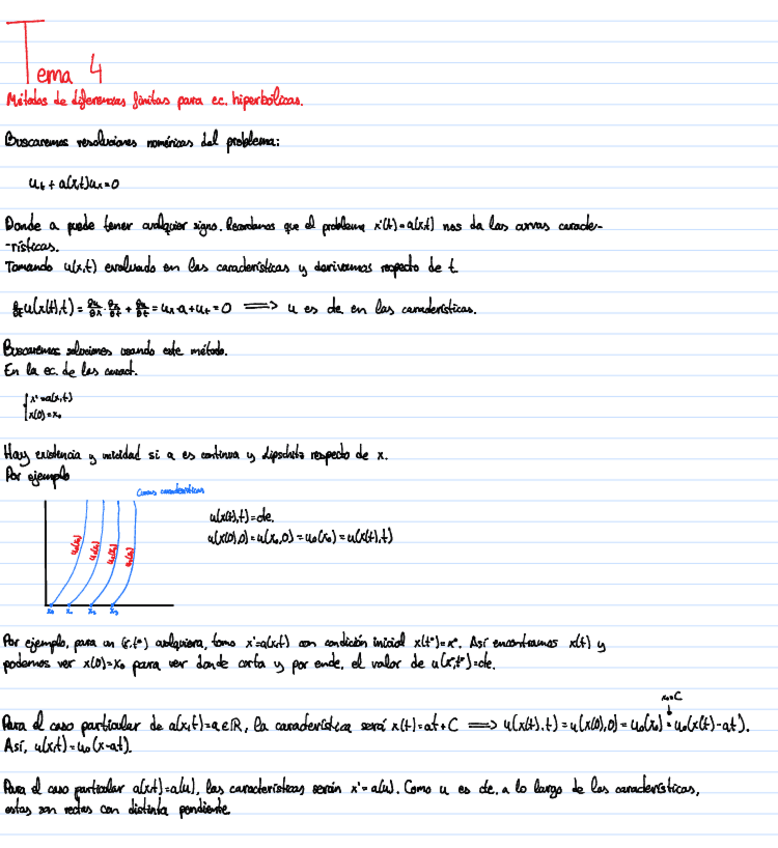 Tema 4
Métodos de diferencias finitas para ec. hiperbólicas.
Buscaremos resoluciones numéricas del problema:
u_t + a(x,t)u_x=0
Donde a puede tener cualquier signo. Recordamos que el problema x'(t)=a(x,t) nos da las curvas caracte-
-rísticas.
Tomando u(x,t) evaluado en las características y derivamos respecto de t
∂/∂t u(x(t),t) = ∂u/∂x · ∂x/∂t + ∂u/∂t = u_x·a+u_t=0 ⟹ u es cte en las características.
Buscaremos soluciones usando este método.
En la ec. de las caract.
{ x'=a(x,t)
x(0)=x₀
Hay existencia y unicidad si a es continua y Lipschitz respecto de x.
Por ejemplo
Curvas características
u(x(t),t)=cte.
u(x(0),0)=u(x₀,0)=u₀(x₀)=u(x(t),t)
u₀(x₀) u₀(x₁) u₀(x₂) u₀(x₃)
x₀ x₁ x₂ x₃
Por ejemplo, para un (x*,t*) cualquiera, tomo x'=a(x,t) con condición inicial x(t*)=x*. Así encontramos x(t) y
podemos ver x(0)=x₀ para ver donde corta y por ende, el valor de u(x*,t*)=cte.
x₀=C
Para el caso particular de a(x,t)=a∈ℝ, la característica será x(t)=at+C ⟹ u(x(t),t)=u(x(0),0)=u₀(x₀)=u₀(x(t)-at).
Así, u(x,t)=u₀(x-at).
Para el caso particular a(x,t)=a(u), las características serán x'=a(u). Como u es cte. a lo largo de las características,
estas son rectas con distinta pendiente.